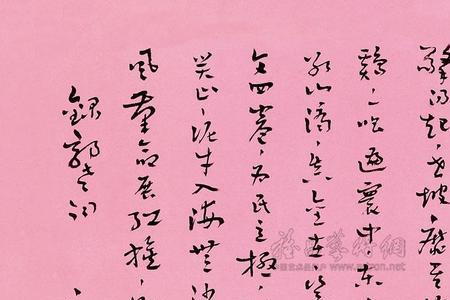 擎得起，世披靡
鷄一唱遍寰中東
冰山滴，真金在，豈
文四卷，为民立極，
笑止，泥牛入海無
風革命展红旗，
錄郭老词